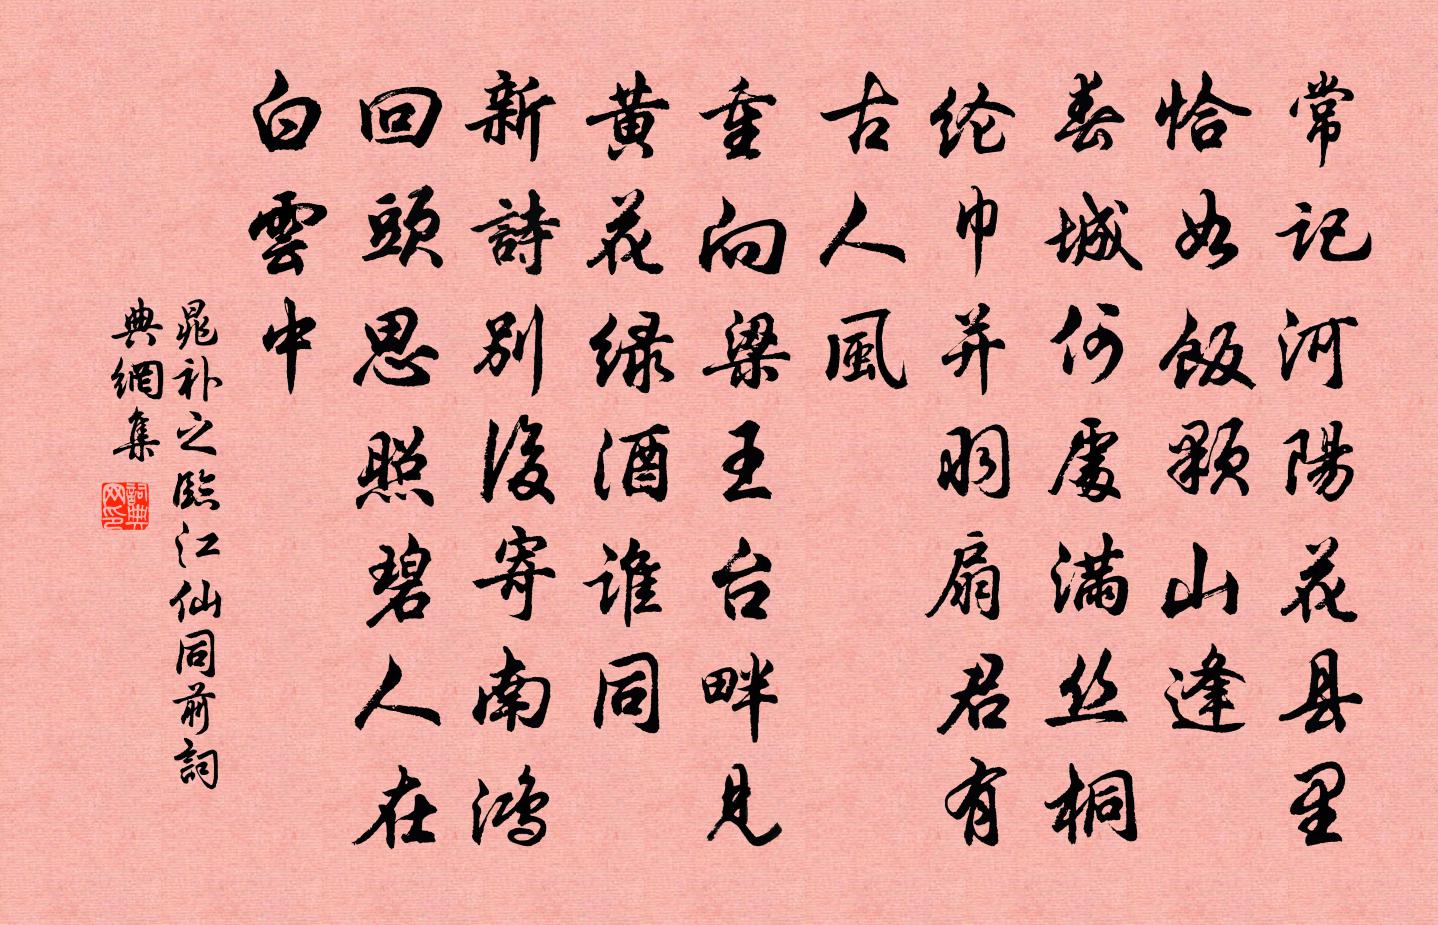 常記河陽花县里
恰如飯顆山逢
春城何處满丝桐
纶巾并羽扇君有
古人風
重向梁王台畔見
黄花绿酒谁同
新詩别後寄南鸿
回頭思照碧人在
白雲中
晁补之臨江仙同前詞
典網集
詞典网印